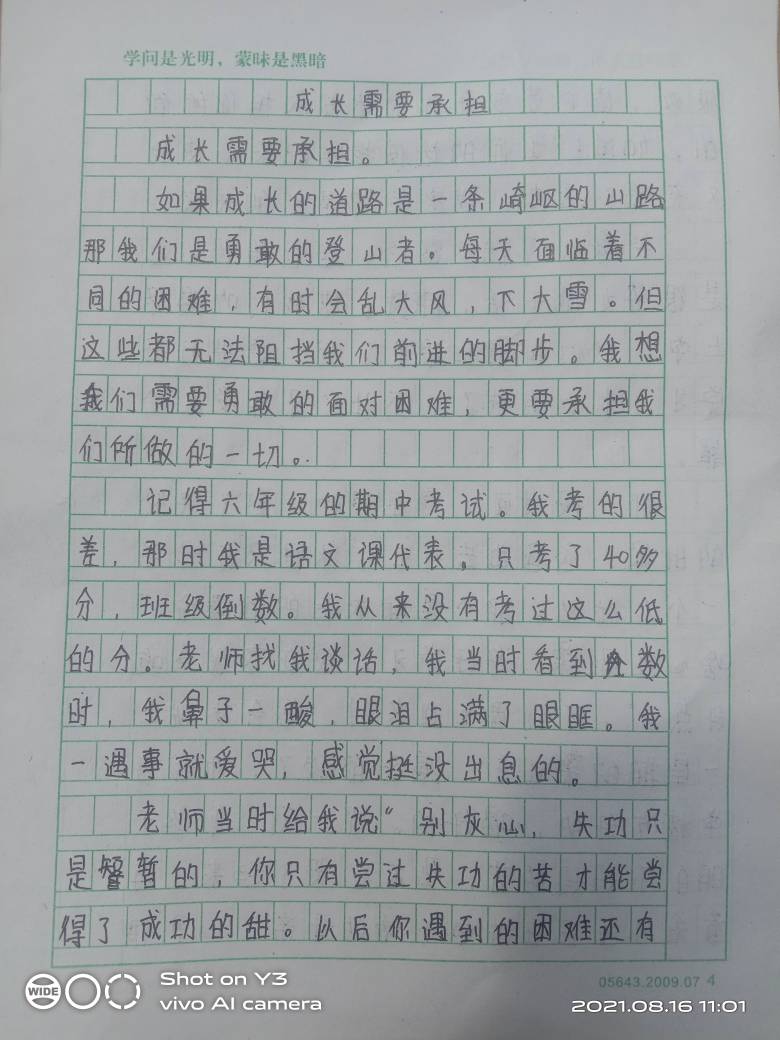 学问是光明，蒙昧是黑暗
成长需要承担
成长需要承担。
如果成长的道路是一条崎岖的山路
那我们是勇敢的登山者。每天面临着不
同的困难，有时会乱大风，下大雪。但
这些都无法阻挡我们前进的脚步。我想
我们需要勇敢的面对困难，更要承担我
们所做的一切。
记得六年级的期中考试。我考的很
差，那时我是语文课代表。只考了40多
分，班级倒数。我从来没有考过这么低
的分。老师找我谈话，我当时看到分数
时，我鼻子一酸，眼泪占满了眼眶。我
一遇事就爱哭，感觉挺没出息的。
老师当时给我说"别灰心，失功只
是暂的，你只有尝过失功的苦才能尝
得了成功的甜。以后你遇到的困难还有
05643.2009.07 4
WIDE
Shot on Y3
vivo AI camera
2021.08.16 11:01